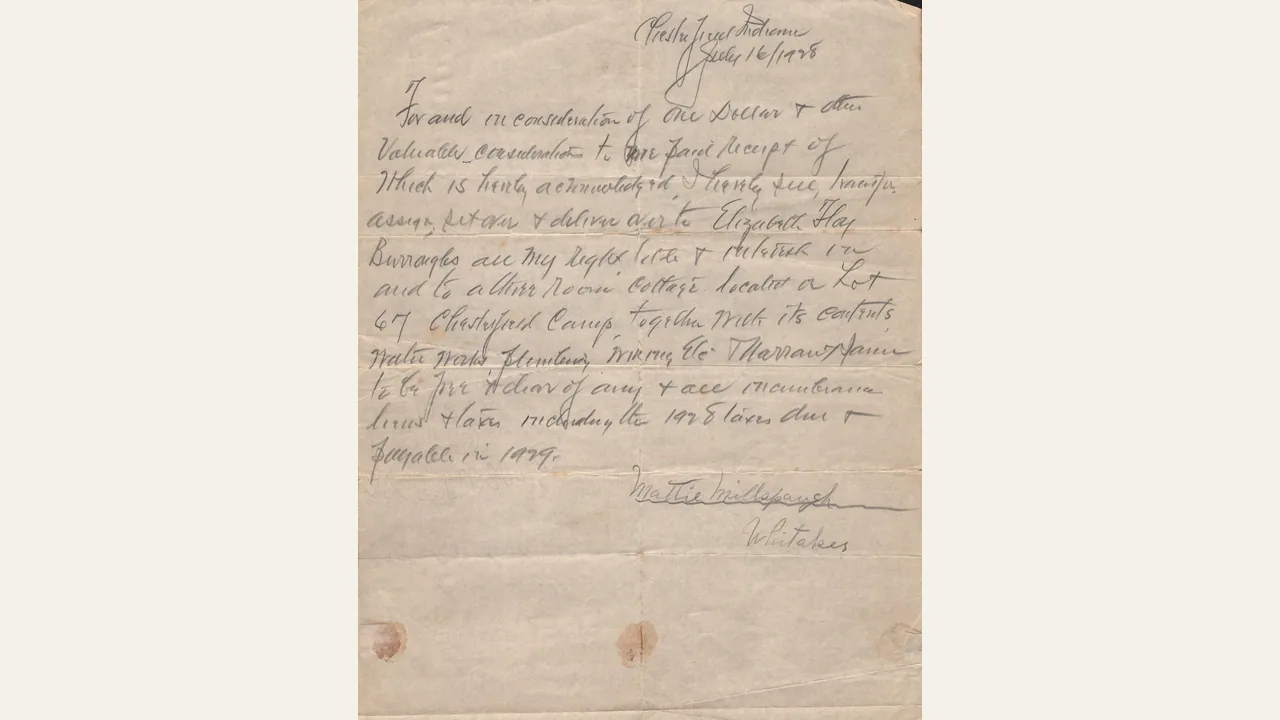 Chesterfield Indiana
July 16/1928
For and in consideration of One Dollar & other
Valuable consideration to me paid Receipt of
Which is hereby acknowledged, I hereby sell, transfer,
assign, set over & deliver over to Elizabeth Hay
Burroughs all my right title & interest in
and to a three Room cottage located on Lot
67 Chesterfield Camp, together with its contents
Water Works plumbing, wiring Etc & Warrant same
to be free & clear of any & all incumbrance
liens & taxes including the 1928 taxes due &
payable in 1929.
Mattie Millspaugh
Whitaker